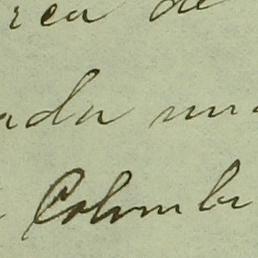 rea de
ada un
Colombi